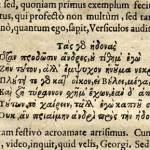 sed, quoniam primus exemplum fecit
tus, qui profectò non multum, sed tan
quantum ego, sapit, Versiculos audit
Τὰς γὰρ ἡδονὰς
Ὅταν προδῶσιν ἄνδρες, οὐ τίθημ' ἐγὼ
Ζῆν τοῦτον, ἀλλ' ἔμψυχον ἡγοῦμαι νεκρ
Πλούτει τε γὰρ κατ' οἶκον, εἰ βούλει, μέγα,
Καὶ ζῆ τύραννον σχῆμ' ἔχων. ἐὰν δ' ἀπῇ
Τούτων τὸ χαίρειν, τἄλλ' ἐγὼ καπνοῦ σκιᾶς
Οὐκ ἂν πριαίμην ἀνδρὶ πρὸς τὴν ἡδονήν.
tam festivo acroamate
video, inquit, quid velis, Georgi. Sed